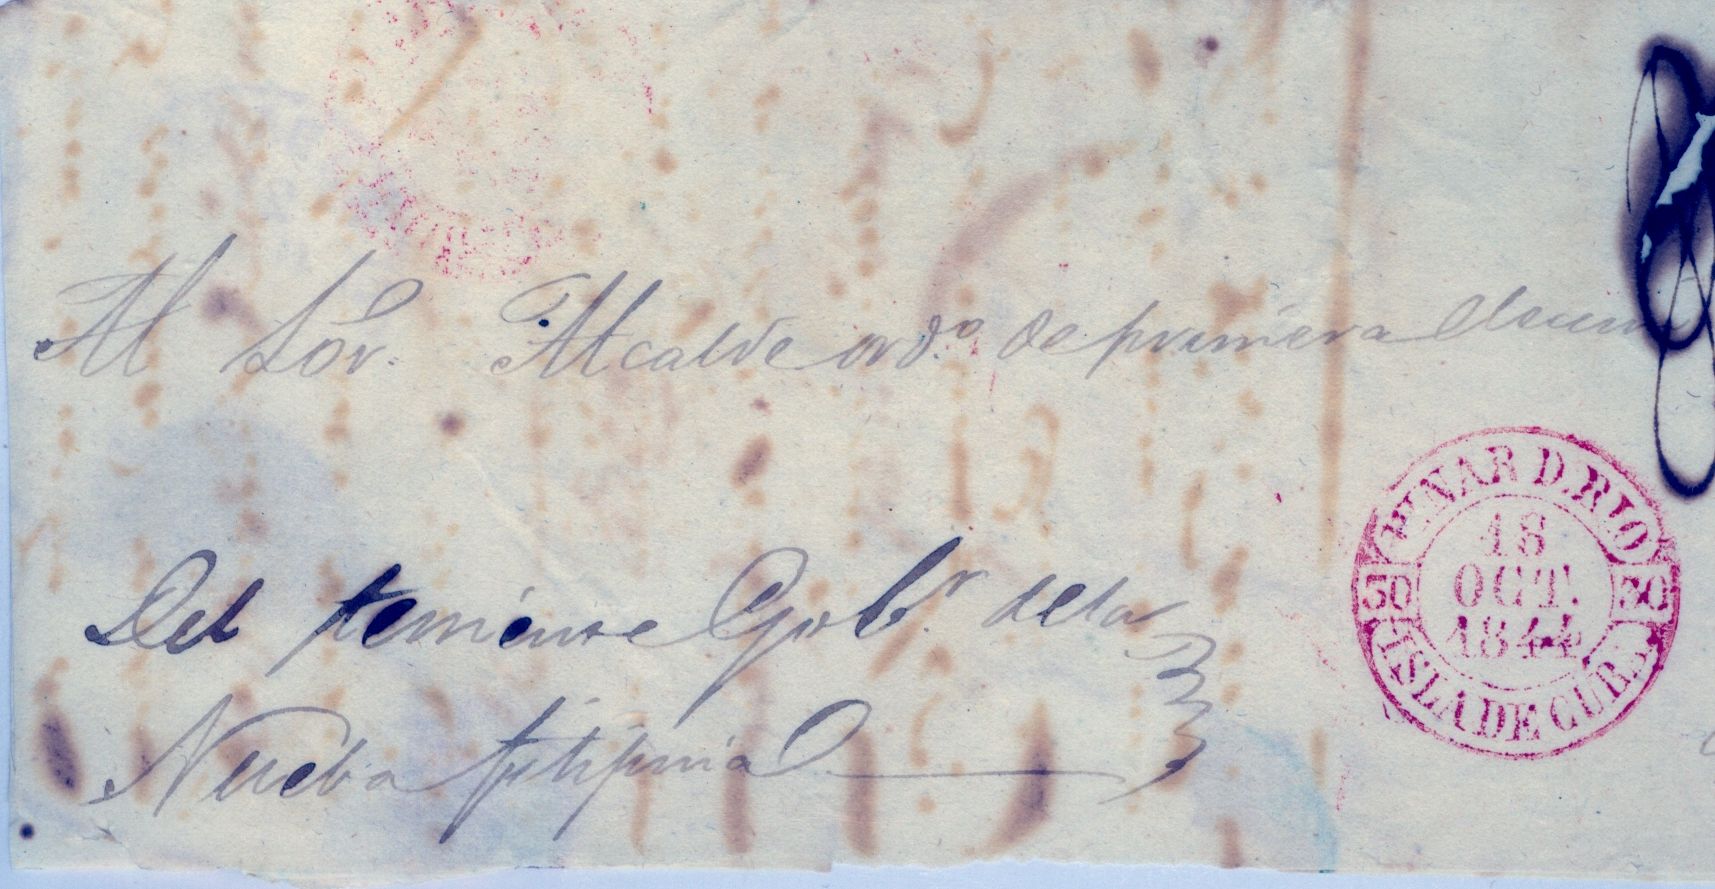 Al Sor. Alcalde ord.º de primera
Del teniente Gobr. dela
Nueba filipina
PINAR D. RIO
18
OCT.
1844
30
30
ISLA DE CUBA